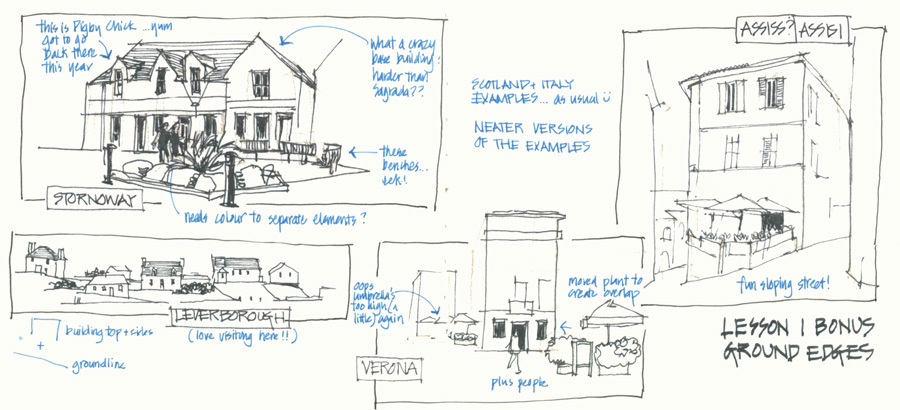 this is Digby Chick ...yum
got to go
back there
this year
What a crazy
base building:
harder than
Sagrada??
these
benches...
eek!
STORNOWAY
needs colour to separate elements?
SCOTLAND + ITALY
EXAMPLES... as usual
NEATER VERSIONS
OF THE EXAMPLES
ASSISS? ASSISI
fun sloping street!
LEVERBOROUGH
(love visiting here!!)
building top + sides
+
groundline
oops
umbrella's
too high (a
little) again
moved plant to
create overlap
VERONA
plus people
LESSON 1 BONUS
GROUND EDGES